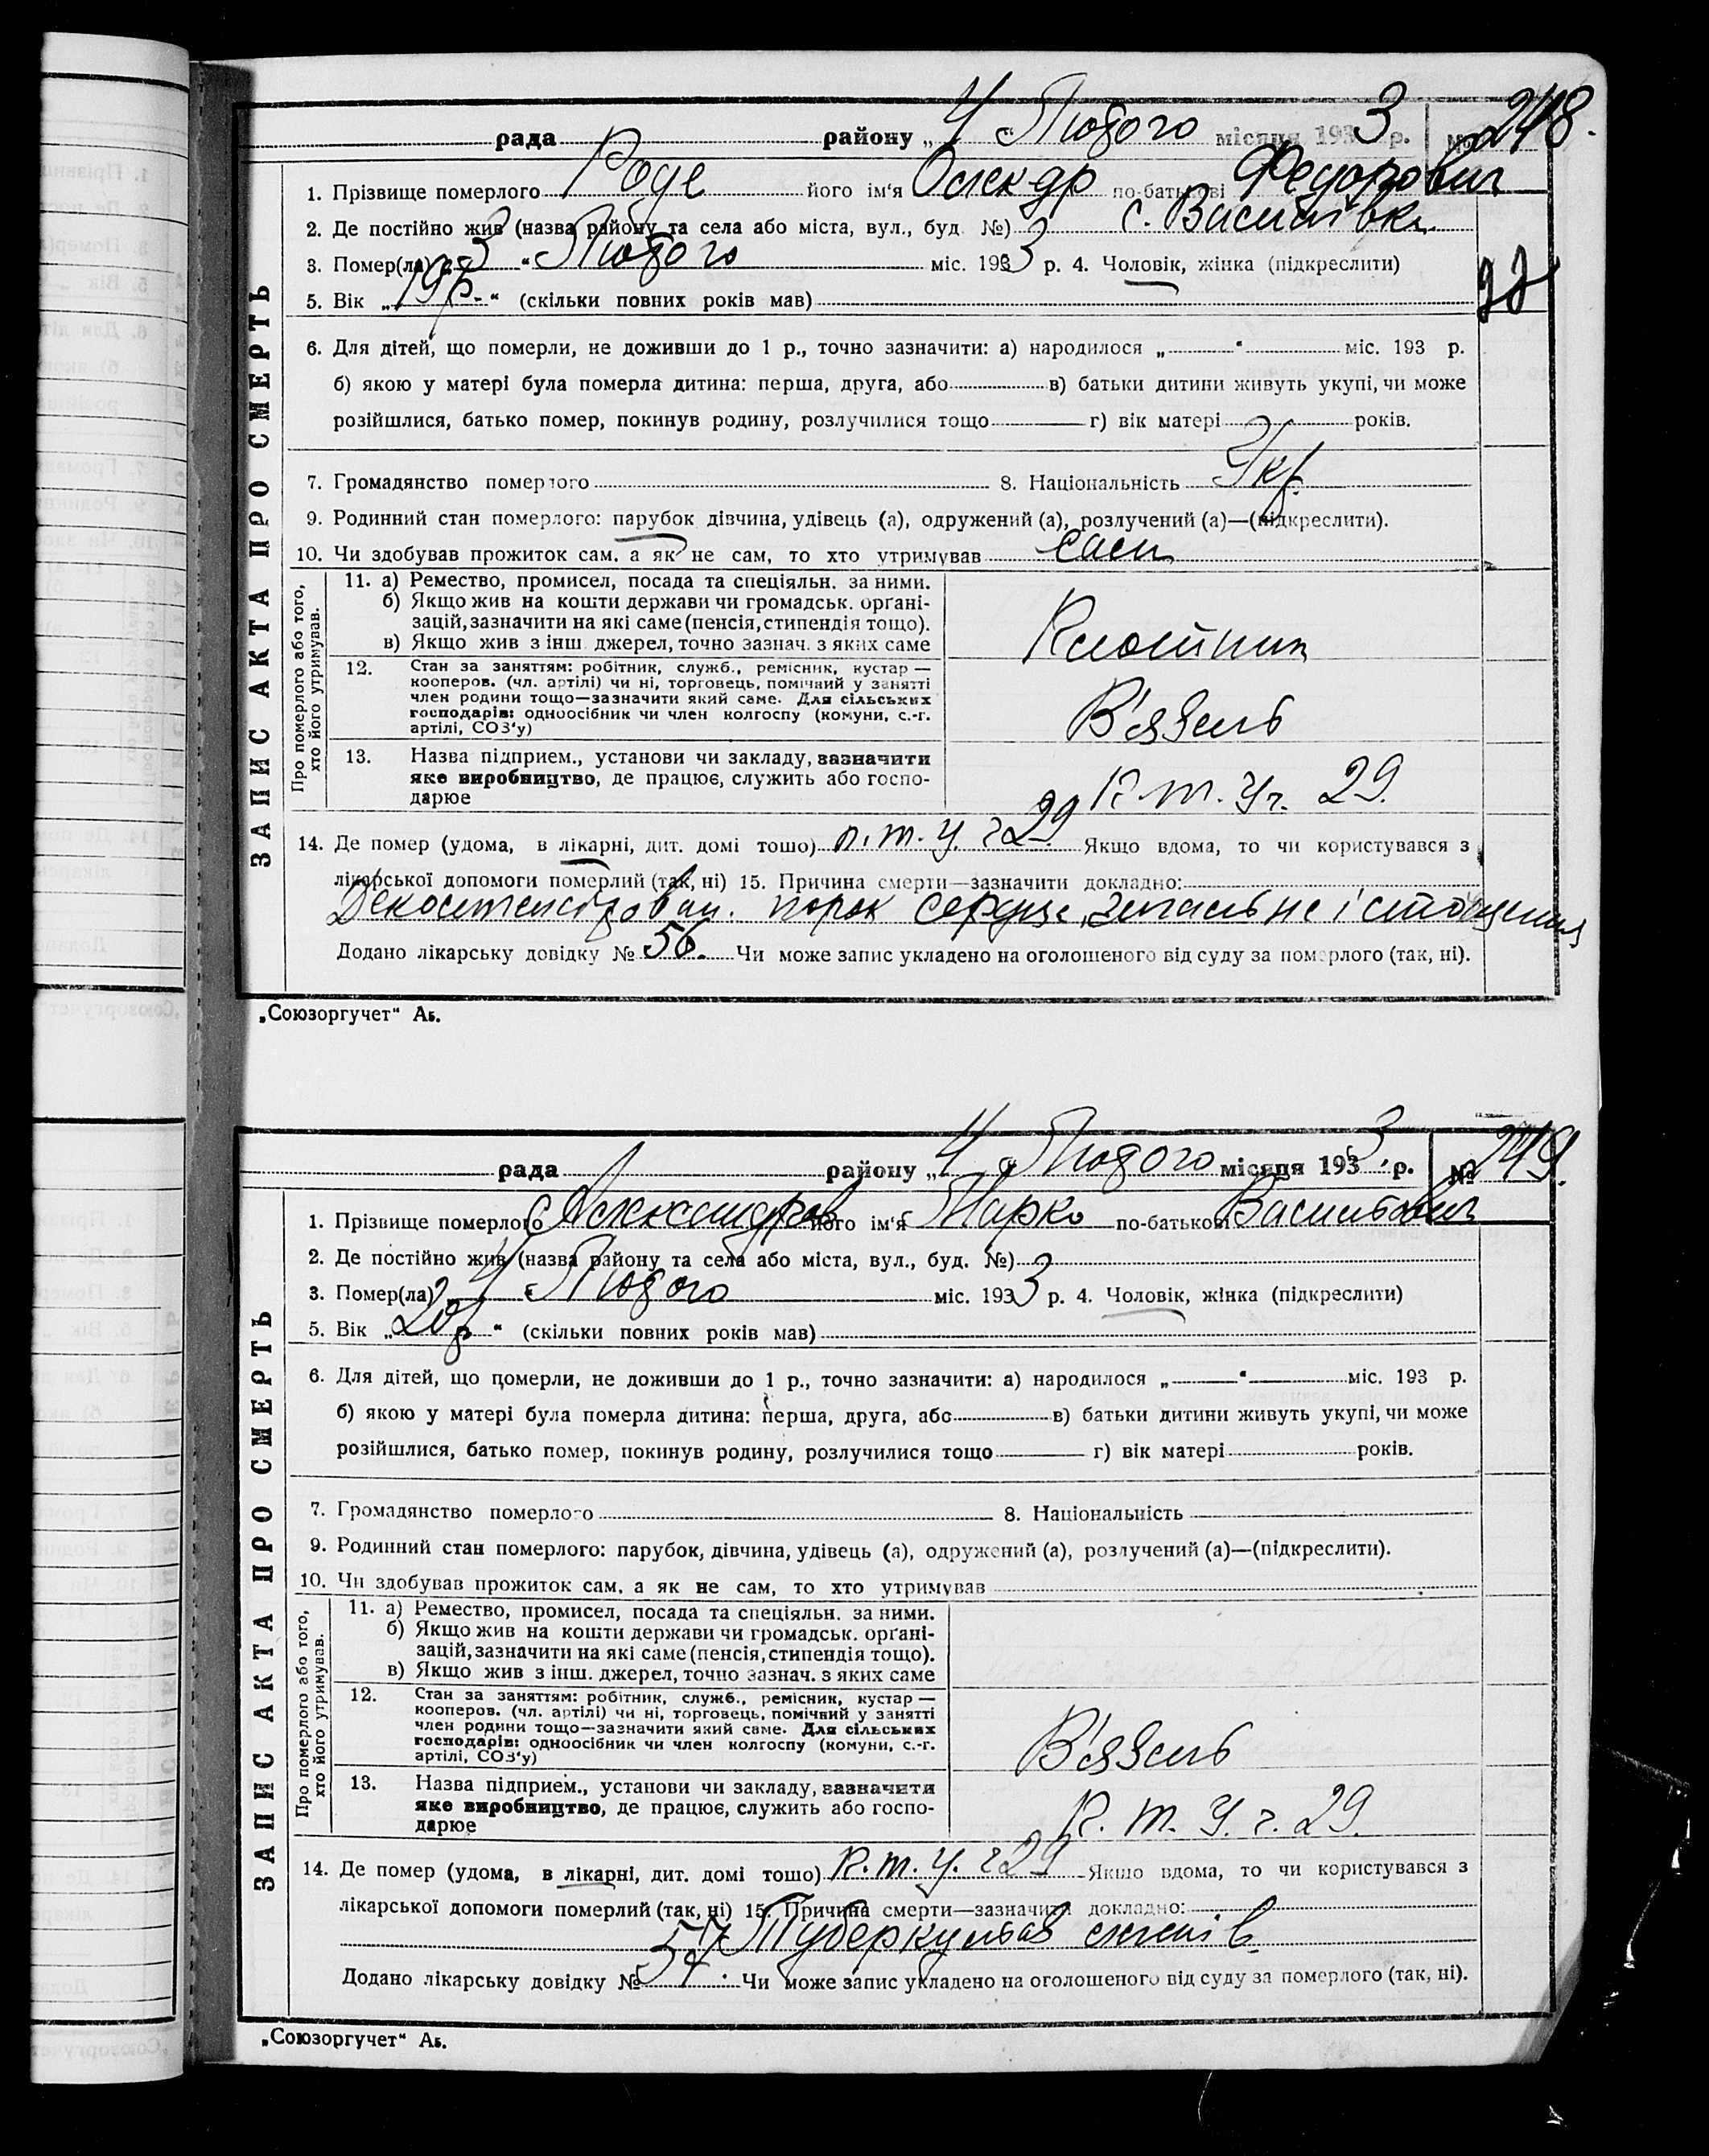 рада районУ „4“ Лютого місяця 1933 р. № 248.
ЗАПИС АКТА ПРО СМЕРТЬ
1. Прізвище померлого Роде його ім‘я Олекдр по-батькові Федорович
2. Де постійно жив (назва району та села або міста, вул., буд. №) с. Василівка
3. Помер(ла) „3“ Лютого міс. 1933 р. 4. Чоловік, жінка (підкреслити)
5. Вік „19р.“ (скільки повних років мав)
6. Для дітей, що померли, не доживши до 1 р., точно зазначити: а) народилося „ “ міс. 193 р.
б) якою у матері була померла дитина: перша, друга, або в) батьки дитини живуть укупі, чи може
розійшлися, батько помер, покинув родину, розлучилися тощо г) вік матері років.
7. Громадянство померлого 8. Національність Укр.
9. Родинний стан померлого: парубок, дівчина, удівець (а), одружений (а), розлучений (а)—(підкреслити).
10. Чи здобував прожиток сам, а як не сам, то хто утримував сам
Про померлого або того, хто його утримував.
11. а) Ремество, промисел, посада та спеціяльн. за ними.
б) Якщо жив на кошти держави чи громадськ. орґані-
зацій, зазначити на які саме (пенсія, стипендія тощо).
в) Якщо жив з інш. джерел, точно зазнач. з яких саме
12. Стан за заняттям: робітник, служб., ремісник, кустар —
кооперов. (чл. артілі) чи ні, торговець, помічний у занятті
член родини тощо—зазначити який саме. Для сільських
господарів: одноосібник чи член колгоспу (комуни, с.-г.
артілі, СОЗ‘у)
В'язень
13. Назва підприєм., установи чи закладу, зазначити
яке виробництво, де працює, служить або госпо-
дарює
п.т.уч. 29.
14. Де помер (удома, в лікарні, дит. домі тощо) п.т.у. ч 29 Якщо вдома, то чи користувався з
лікарської допомоги померлий (так, ні) 15. Причина смерти—зазначити докладно:
порок серця,
Додано лікарську довідку № 56. Чи може запис укладено на оголошеного від суду за померлого (так, ні).
„Союзоргучет“ Аб.
рада району „4“ Лютого місяця 1933 р. № 249.
ЗАПИС АКТА ПРО СМЕРТЬ
1. Прізвище померлого Александров його ім‘я Марко по-батькові Васильович
2. Де постійно жив (назва району та села або міста, вул., буд. №)
3. Помер(ла) „4“ Лютого міс. 1933 р. 4. Чоловік, жінка (підкреслити)
5. Вік „20р“ (скільки повних років мав)
6. Для дітей, що померли, не доживши до 1 р., точно зазначити: а) народилося „ “ міс. 193 р.
б) якою у матері була померла дитина: перша, друга, або в) батьки дитини живуть укупі, чи може
розійшлися, батько помер, покинув родину, розлучилися тощо г) вік матері років.
7. Громадянство померлого 8. Національність
9. Родинний стан померлого: парубок, дівчина, удівець (а), одружений (а), розлучений (а)—(підкреслити).
10. Чи здобував прожиток сам, а як не сам, то хто утримував
Про померлого або того, хто його утримував.
11. а) Ремество, промисел, посада та спеціяльн. за ними.
б) Якщо жив на кошти держави чи громадськ. орґані-
зацій, зазначити на які саме (пенсія, стипендія тощо).
в) Якщо жив з інш. джерел, точно зазнач. з яких саме
12. Стан за заняттям: робітник, служб., ремісник, кустар —
кооперов. (чл. артілі) чи ні, торговець, помічний у занятті
член родини тощо—зазначити який саме. Для сільських
господарів: одноосібник чи член колгоспу (комуни, с.-г.
артілі, СОЗ‘у)
В'язень
13. Назва підприєм., установи чи закладу, зазначити
яке виробництво, де працює, служить або госпо-
дарює
п.т.у.ч. 29.
14. Де помер (удома, в лікарні, дит. домі тощо) п.т.у. ч 29 Якщо вдома, то чи користувався з
лікарської допомоги померлий (так, ні) 15. Причина смерти—зазначити докладно:
Туберкульоз легенів
Додано лікарську довідку № 57. Чи може запис укладено на оголошеного від суду за померлого (так, ні).
„Союзоргучет“ Аб.